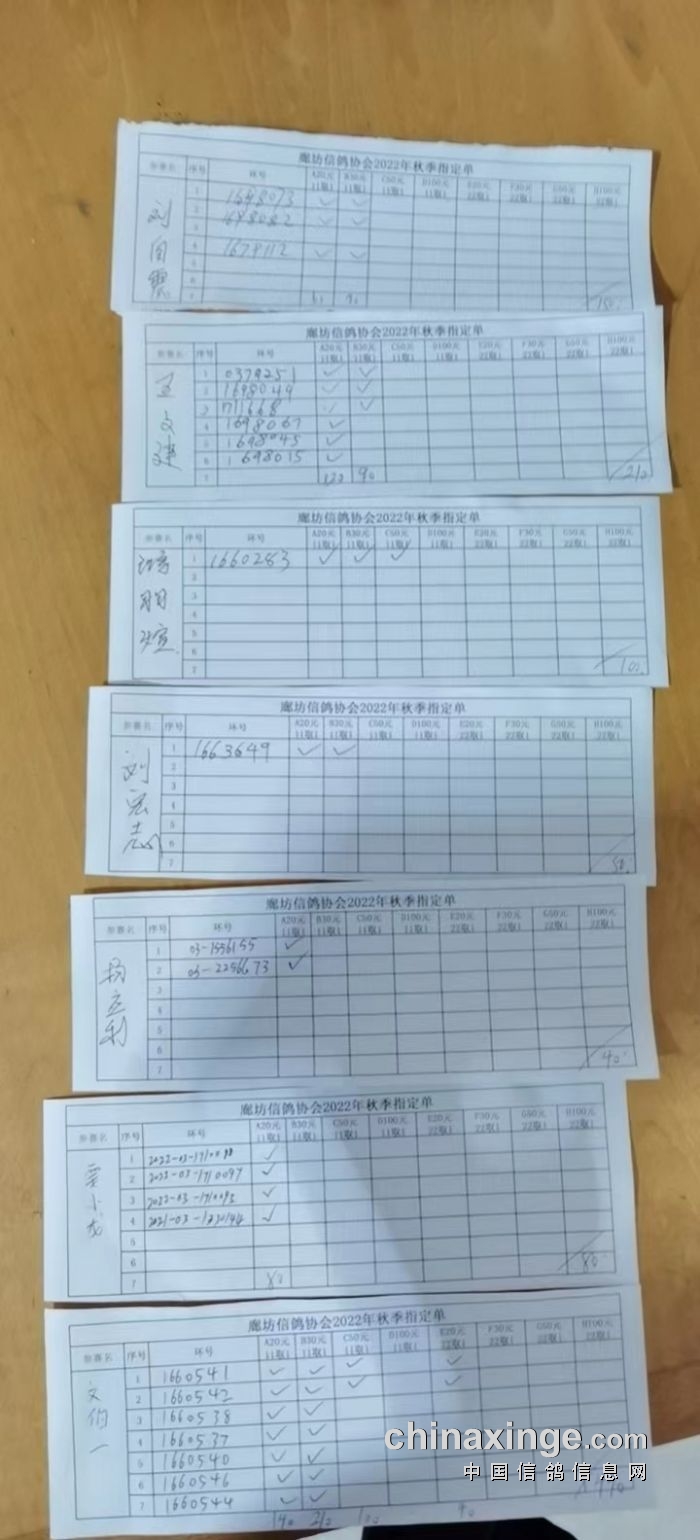 廊坊信鸽协会2022年秋季指定单
参赛名 序号 环号 A20元11取1 B30元11取1 C50元11取1 D100元11取1 E20元22取1 F30元22取1 G50元22取1 H100元22取1
刘
1 1698073 ✓ ✓
2 1698082 ✓ ✓
3
4 ✓ ✓
5
6
7
150
廊坊信鸽协会2022年秋季指定单
参赛名 序号 环号 A20元11取1 B30元11取1 C50元11取1 D100元11取1 E20元22取1 F30元22取1 G50元22取1 H100元22取1
1 0379251 ✓ ✓
2 1698049 ✓ ✓
3 711668 ✓ ✓
4 1698067 ✓
5 1698045 ✓
6 1698015 ✓
7 120 90 210
廊坊信鸽协会2022年秋季指定单
参赛名 序号 环号 A20元11取1 B30元11取1 C50元11取1 D100元11取1 E20元22取1 F30元22取1 G50元22取1 H100元22取1
1 1660283 ✓ ✓ ✓
2
3
4
5
6
7 100
廊坊信鸽协会2022年秋季指定单
参赛名 序号 环号 A20元11取1 B30元11取1 C50元11取1 D100元11取1 E20元22取1 F30元22取1 G50元22取1 H100元22取1
刘宏志
1 1663649 ✓ ✓
2
3
4
5
6
7 50
廊坊信鸽协会2022年秋季指定单
参赛名 序号 环号 A20元11取1 B30元11取1 C50元11取1 D100元11取1 E20元22取1 F30元22取1 G50元22取1 H100元22取1
杨立利
1 03-1556155 ✓
2 03-2256673 ✓
3
4
5
6
7 40
廊坊信鸽协会2022年秋季指定单
参赛名 序号 环号 A20元11取1 B30元11取1 C50元11取1 D100元11取1 E20元22取1 F30元22取1 G50元22取1 H100元22取1
1 ✓
2 2022-03-1710097 ✓
3 2022-03-1710093 ✓
4 ✓
5
6
7 80 80
廊坊信鸽协会2022年秋季指定单
参赛名 序号 环号 A20元11取1 B30元11取1 C50元11取1 D100元11取1 E20元22取1 F30元22取1 G50元22取1 H100元22取1
1 1660541 ✓ ✓ ✓ ✓
2 1660542 ✓ ✓ ✓ ✓
3 1660538 ✓ ✓
4 1660537 ✓ ✓
5 1660540 ✓ ✓
6 1660546 ✓ ✓
7 1660544 ✓ ✓
140 210 100 40
chinaxinge.com
中国信鸽信息网